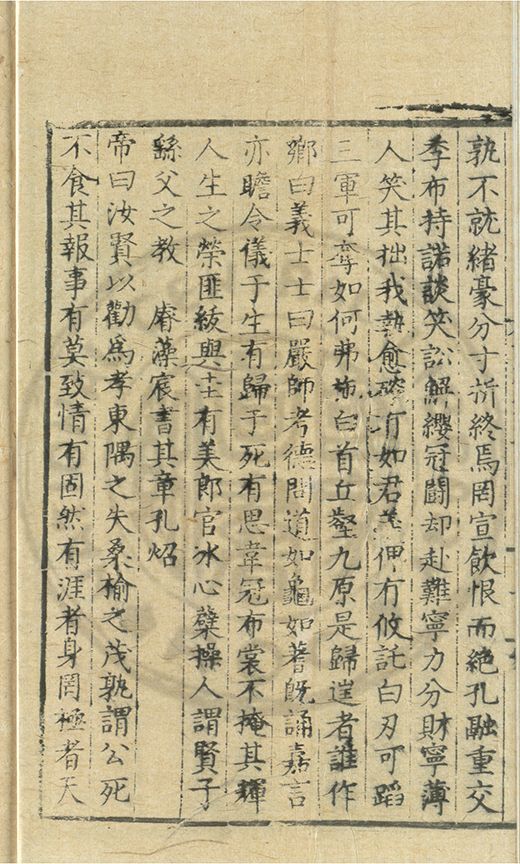 孰不就緒豪分寸析終焉罔宣飲恨而絕孔融重交
季布持諾談笑訟解纓冠鬪却赴難寧力分財寧薄
人笑其拙我執愈確有如君義俾有攸託白刃可蹈
三軍可奪如何弗施白首丘壑九原是歸逹者誰作
鄉曰義士士曰嚴師考德問道如龜如蓍既誦嘉言
亦瞻令儀于生有歸于死有思韋冠布裳不掩其輝
人生之榮匪紱與圭有美郎官冰心蘗操人謂賢子
繇父之教 睿藻宸書其章孔炤
帝曰汝賢以勸為孝東隅之失桑榆之茂孰謂公死
不食其報事有莫致情有固然有涯者身罔極者天